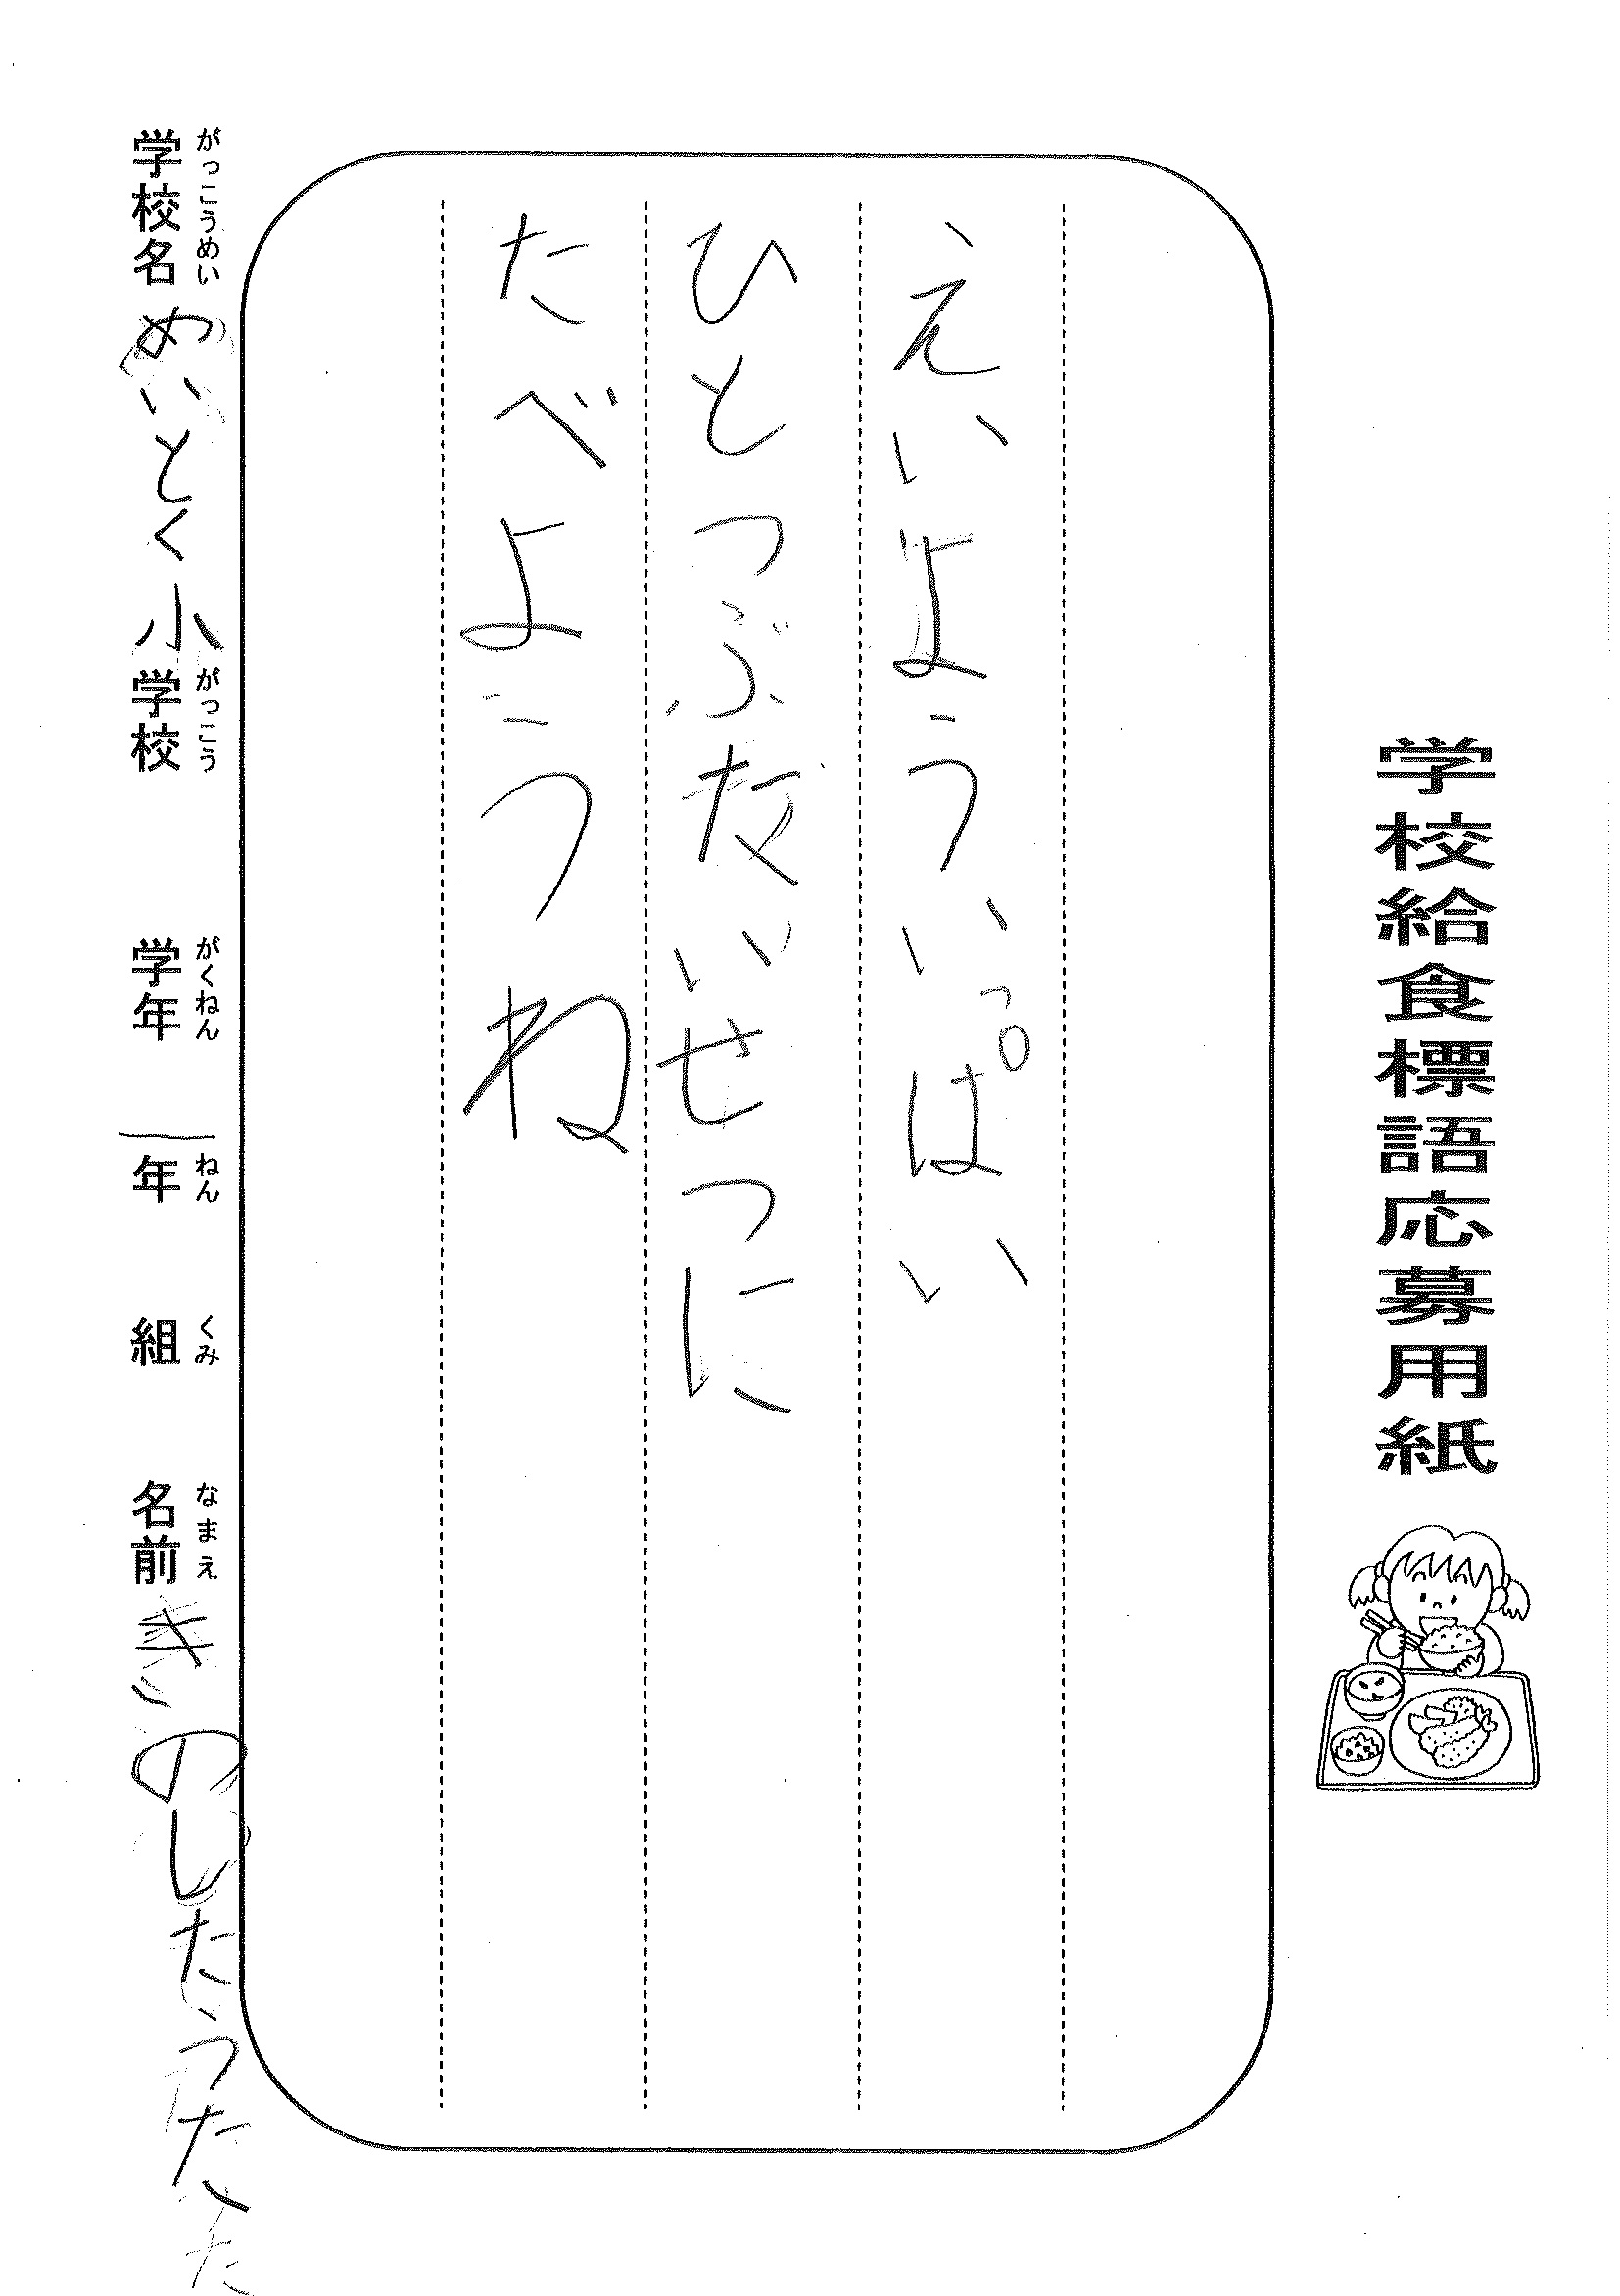 学校給食標語応募用紙
えいよういっぱい
ひとつぶたいせつに
たべようね
がっこうめい がっこう がくねん ねん くみ なまえ
学校名 めいとく小 学校 学年 一年 組 名前 きのしたつた